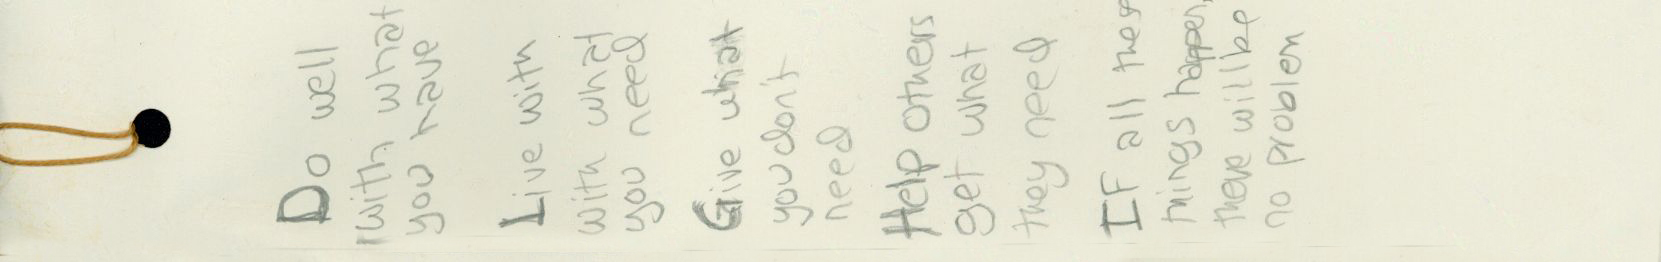 Do well
with what
you have
Live with
with what
you need
Give what
you don't
need
Help others
get what
they need
IF all these
things happen,
there will be
no problem